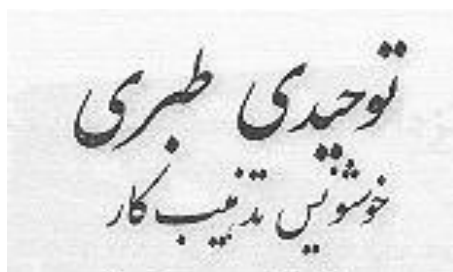 توحیدی طبری
خوشنویس تذهیب کار